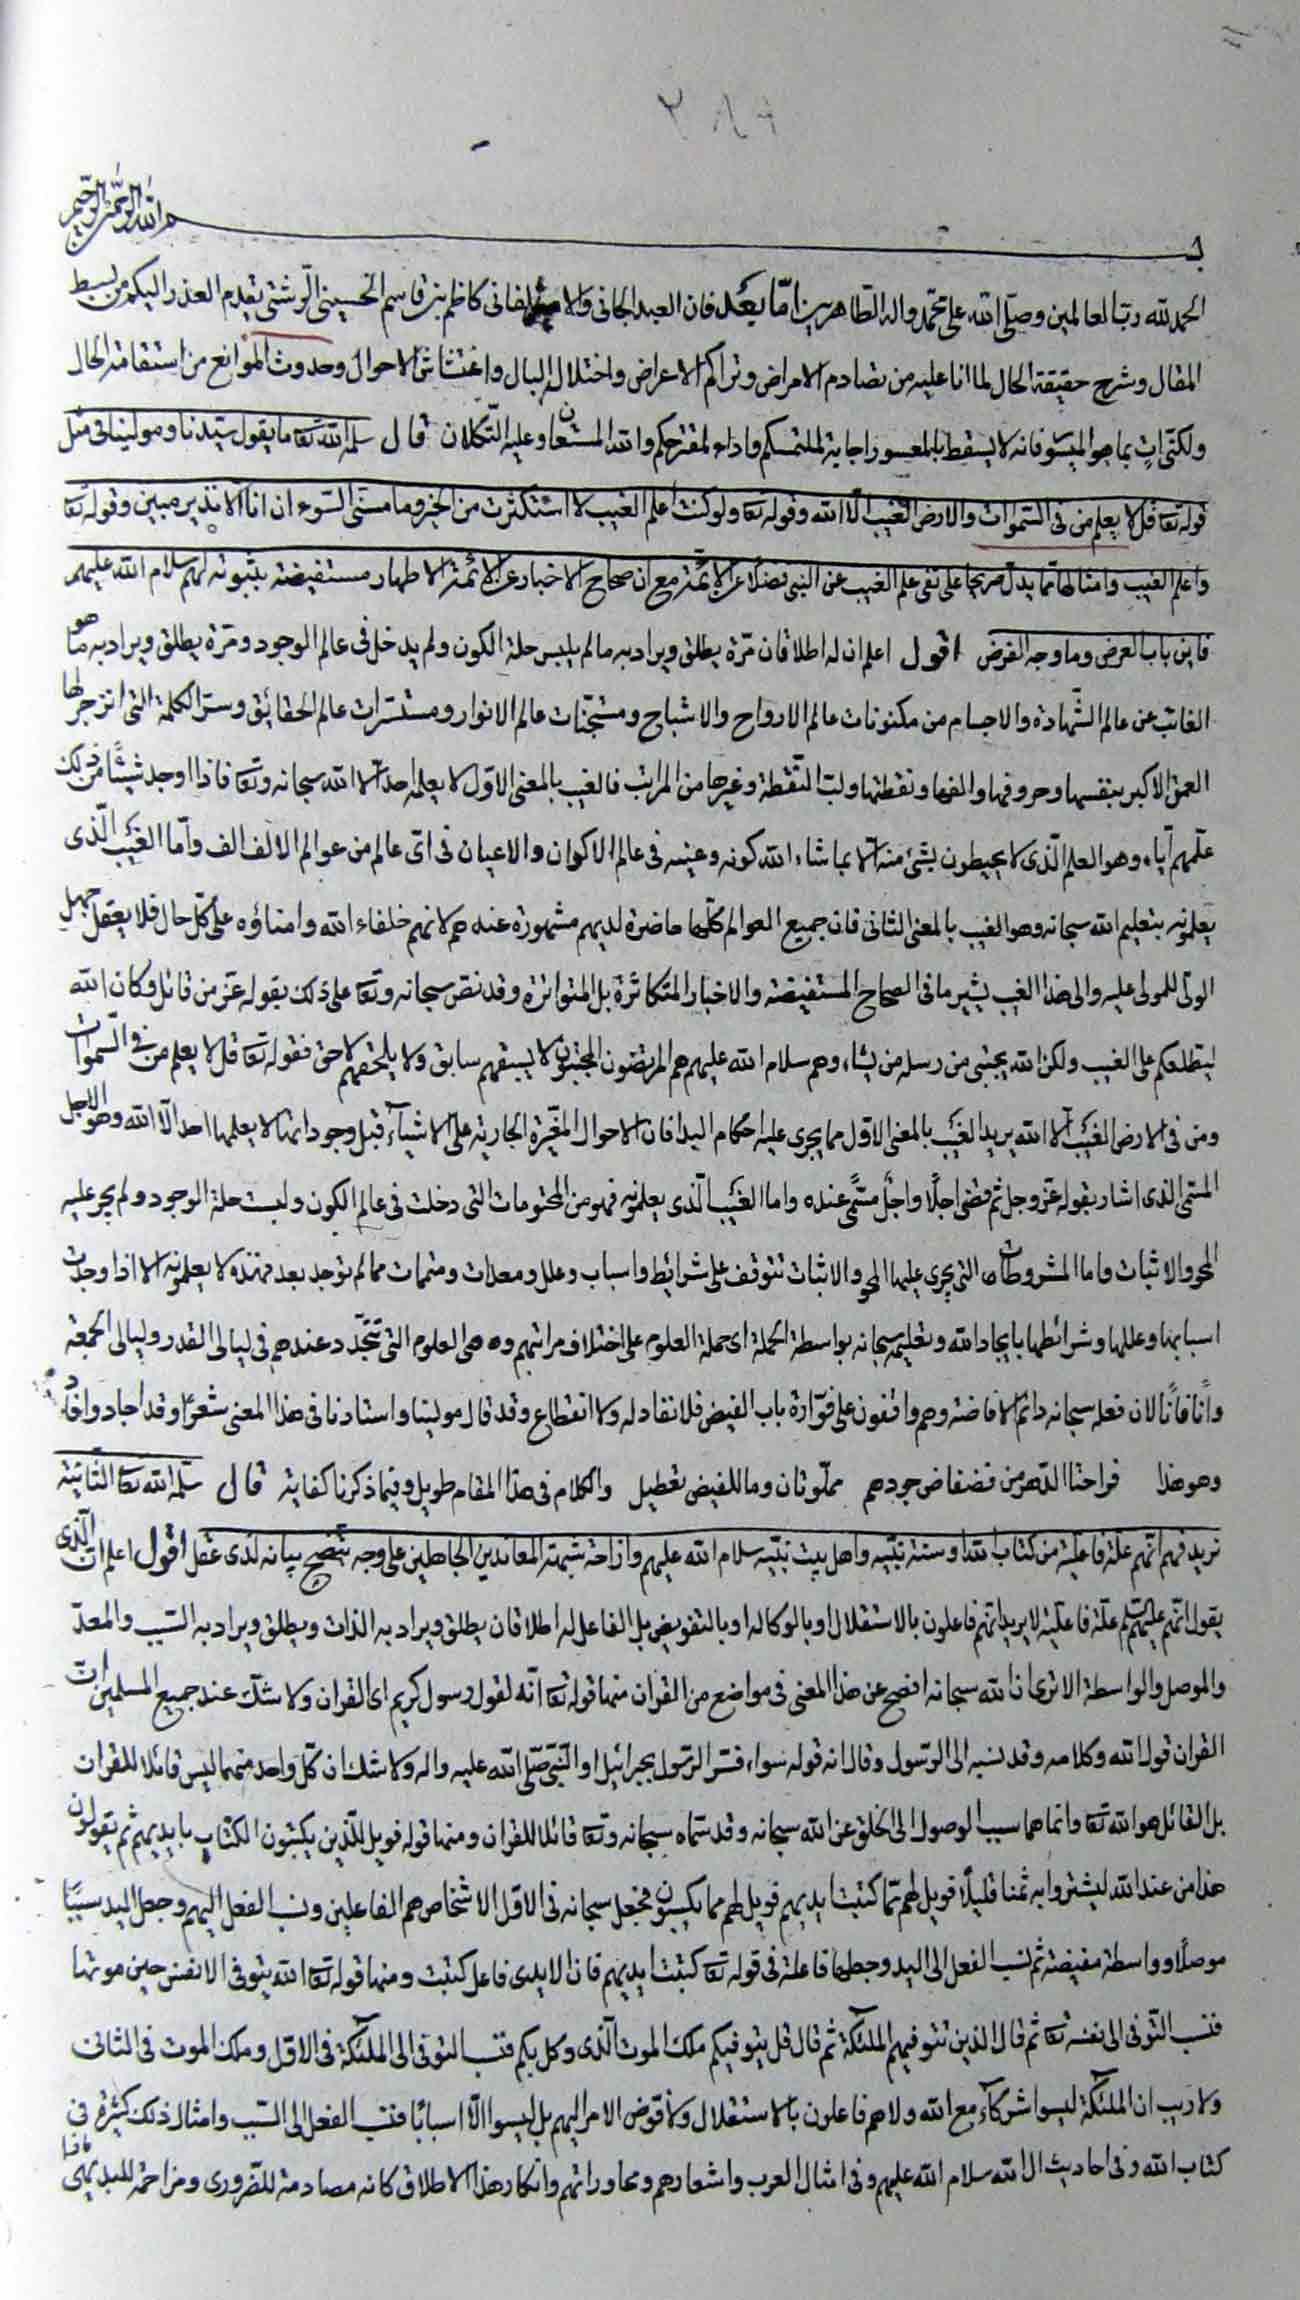 ٢٨٦
بسم الله الرحمن الرحيم
الحمد لله رب العالمين وصلى الله على محمد واله الطاهرين امّا بعد فان العبد الجانى والاسير الفانى كاظم بن قاسم الحسينى الرشتى يقدم العذر اليكم من بسط
المقال وشرح حقيقة الحال لما انا عليه من تصادم الامراض وتراكم الاعراض واختلال البال واغتشاش الاحوال وحدوث الموانع من استقامة الحال
ولكنى اٰتٍ بما هو الميسور فانه لا يسقط بالمعسور اجابة لملتمسكم واداء لمقترحكم والله المستعان وعليه التكلان قال سلمه الله تعا ما يقول سيدنا ومولينا فى مثل
قوله تعا قل لا يعلم من فى السموات والارض الغيب الّا الله وقوله تعا ولو كنت اعلم الغيب لا استكثرت من الخير وما مسنى السوء ان انا الّا نذير مبين وقوله تعا
واعلم الغيب وامثالها مما يدل صريحا على نفى علم الغيب عن النبى فضلا عن الائمة مع ان صحاح الاخبار عن الائمة الاطهار مستفيضة بثبوته لهم سلام الله عليهم
فاين باب العرض وما وجه الفرض اقول اعلم ان له اطلاقان مرّة يطلق ويراد به ما لم يلبس حلة الكون ولم يدخل فى عالم الوجود ومرة يطلق ويراد به ما هو
الغائب عن عالم الشهادة والاجسام من مكنونات عالم الارواح والاشباح ومستجنّات عالم الانوار ومستسرات عالم الحقائق وسرّ الكلمة التى انزجر لها
العمق الاكبر بنفسها وحروفها والفها ونقطتها ولبّ النقطة وغيرها من المراتب فالغيب بالمعنى الاوّل لا يعلمه احد الّا الله سبحانه وتعا فاذا اوجد شيئًا من ذلك
علّمهم ايّاه وهو العلم الّذى لا يحيطون بشئ منه الّا بما شاء الله كونه وعينه فى عالم الاكوان والاعيان فى اىّ عالم من عوالم الالف الف وامّا الغيب الّذى
يعلمونه بتعليم الله سبحانه وهو الغيب بالمعنى الثانى فان جميع العوالم كلّها حاضرة لديهم مشهودة عندهم لانهم خلفاء الله وامناؤه على كلّ حال فلا يعقل جهل
الولىّ للمولى عليه والى هذا الغيب يشير ما فى الصحاح المستفيضة والاخبار المتكاثرة بل المتواترة وقد نصّ سبحانه وتعا على ذلك بقوله عزّ من قائل وكان الله
ليطلعكم على الغيب ولكن الله يجتبى من رسله من يشاء وهم سلام الله عليهم هم المرتضون المجتبون لا يسبقهم سابق ولا يلحقهم لاحق فقوله تعا قل لا يعلم من فى السموات
ومن فى الارض الغيب الّا الله يريد الغيب بالمعنى الاول مما يجرى عليه احكام البدا فان الاحوال المغيّرة الجارية على الاشيآء قبل وجوداتها لا يعلمها احد الّا الله وهو الاجل
المسمى الذى اشار بقوله عزّ وجل ثم قضى اجلًا واجل مسمّى عنده واما الغيب الّذى يعلمونه فهو من المحتومات التى دخلت فى عالم الكون ولبست حلة الوجود ولم يجر عليه
المحو والاثبات واما المشروطات التى يجرى عليها المحو والاثبات تتوقف على شرائط واسباب وعلل ومعدات ومتممات مما لم توجد بعد فهذه لا يعلمونه الا اذا وجدت
اسبابها وعللها وشرائطها بايجاد الله وتعليمه سبحانه بواسطة الحملة اى حملة العلوم على اختلاف مراتبهم وهى العلوم التى تتجدّد عندهم فى ليالى القدر وليالى الجمعة
وانًا فانًا لان فعله سبحانه دائم الافاضة وهم واقفون على فوّارة باب الفيض فلا نفاد له ولا انقطاع وقد قال مولينا واستادنا فى هذا المعنى شعرًا وقد اجاد وافاد
وهو هذا فراحتا الدهر من فضفاض جودهم مملوّتان وما للفيض تعطيل والكلام فى هذا المقام طويل وفيما ذكرنا كفاية قال سلّمه الله تعا الثانية
نريد فهم انهم علة فاعلية من كتاب الله وسنة نبيه واهل بيت نبيه سلام الله عليهم وازاحة شبهة المعاندين الجاهلين على وجه يتضح بيانه لذى عقل اقول اعلم ان الّذى
يقول انهم عليهم السلم علّة فاعلية لا يريد انهم فاعلون بالاستقلال او بالوكالة او بالتفويض بل الفاعل له اطلاقان يطلق ويراد به الذات ويطلق ويراد به السبب والمعدّ
والموصل والواسطة الا ترى ان الله سبحانه افصح عن هذا المعنى فى مواضع من القران منها قوله تعا انّه لقول رسول كريم اى القران ولا شكّ عند جميع المسلمين ان
القران قول الله وكلامه وقد نسبه الى الرسول وقال انه قوله سواء فسّر الرّسول بجبرائيل او النّبى صلّى الله عليه واله ولا شك ان كلّ واحد منهما ليس قائلا للقران
بل القائل هو الله تعا وانما هما سبب الوصول الى الخلق عن الله سبحانه وقد سمّاه سبحانه وتعا قائلا للقران ومنها قوله فويل للّذين يكتبون الكتاب بايديهم ثم يقولون
هذا من عند الله ليشتروا به ثمنا قليلًا فويل لهم ممّا كتبت ايديهم فويل لهم مما يكسبون فجعل سبحانه فى الاوّل الاشخاص هم الفاعلين ونسب الفعل اليهم وجعل اليد سببًا
موصلًا وواسطة مفيضة ثم نسب الفعل الى اليد وجعلها فاعلة فى قوله تعا كتبت ايديهم فان الايدى فاعل كتبت ومنها قوله تعا الله يتوفى الانفس حين موتها
فنسب التوفى الى نفسه تعا ثم قال الذين تتوفيهم الملئكة ثم قال قل يتوفيكم ملك الموت الّذى وكل بكم فنسب التوفى الى الملئكة فى الاوّل وملك الموت فى الثانى
ولا ريب ان الملئكة ليسوا شركآء مع الله ولا هم فاعلون بالاستقلال ولا فوّض الامر اليهم بل ليسوا الّا اسبابًا فنسب الفعل الى السبب وامثال ذلك كثيرة فى
كتاب الله وفى احاديث ال الله سلام الله عليهم وفى امثال العرب واشعارهم ومحاوراتهم وانكار هذا الاطلاق كانه مصادمة للضرورى ومزاحمة للبديهى